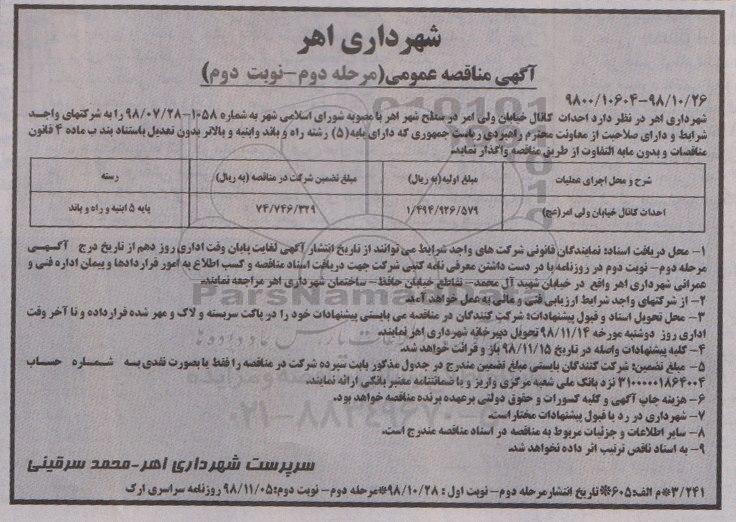 شهرداری اهر
آگهی مناقصه عمومی(مرحله دوم-نوبت دوم)
۹۸۰۰/۱۰۶۰۴-۹۸/۱۰/۲۶
شهرداری اهر در نظر دارد احداث کانال خیابان ولی امر در سطح شهر اهر با مصوبه شورای اسلامی شهر به شماره ۱۰۵۸-۹۸/۰۷/۲۸ را به شرکتهای واجد
شرایط و دارای صلاحیت از معاونت محترم راهبردی ریاست جمهوری که دارای پایه(۵) رشته راه و باند وابنیه و بالاتر بدون تعدیل باستناد بند ب ماده ۴ قانون
مناقصات و بدون مابه التفاوت از طریق مناقصه واگذار نماید.
شرح و محل اجرای عملیات	مبلغ اولیه(به ریال)	مبلغ تضمین شرکت در مناقصه (به ریال)	رسته
احداث کانال خیابان ولی امر(عج)	۱/۴۹۴/۹۲۶/۵۷۹	۷۴/۷۴۶/۳۲۹	پایه ۵ ابنیه و راه و باند
۱- محل دریافت اسناد: نمایندگان قانونی شرکت های واجد شرایط می توانند از تاریخ انتشار آگهی لغایت پایان وقت اداری روز دهم از تاریخ درج آگهی
مرحله دوم- نوبت دوم در روزنامه با در دست داشتن معرفی نامه کتبی شرکت جهت دریافت اسناد مناقصه و کسب اطلاع به امور قراردادها و پیمان اداره فنی و
عمرانی شهرداری اهر واقع در خیابان شهید آل محمد- تقاطع خیابان حافظ- ساختمان شهرداری اهر مراجعه نمایند.
۲- از شرکتهای واجد شرایط ارزیابی فنی و مالی به عمل خواهد آمد.
۳- محل تحویل اسناد و قبول پیشنهادات: شرکت کنندگان در مناقصه می بایستی پیشنهادات خود را در پاکت سربسته و لاک و مهر شده قرارداده و تا آخر وقت
اداری روز دوشنبه مورخه ۹۸/۱۱/۱۴ تحویل دبیرخانه شهرداری اهر نمایند.
۴- کلیه پیشنهادات واصله در تاریخ ۹۸/۱۱/۱۵ باز و قرائت خواهد شد.
۵- مبلغ تضمین: شرکت کنندگان بایستی مبلغ تضمین مندرج در جدول مذکور بابت سپرده شرکت در مناقصه را فقط یا بصورت نقدی به شماره حساب
۳۱۰۰۰۰۰۱۸۶۴۰۰۴ نزد بانک ملی شعبه مرکزی واریز و یا ضمانتنامه معتبر بانکی ارائه نمایند.
۶- هزینه چاپ آگهی و کلیه کسورات و حقوق دولتی برعهده برنده مناقصه خواهد بود.
۷- شهرداری در رد یا قبول پیشنهادات مختار است.
۸- سایر اطلاعات و جزئیات مربوط به مناقصه در اسناد مناقصه مندرج است.
۹- به اسناد ناقص ترتیب اثر داده نخواهد شد.
سرپرست شهرداری اهر-محمد سرقینی
۳/۲۴۱*م الف:۶۰۵*تاریخ انتشار مرحله دوم- نوبت اول: ۹۸/۱۰/۲۸*مرحله دوم- نوبت دوم:۹۸/۱۱/۰۵ روزنامه سراسری ارک